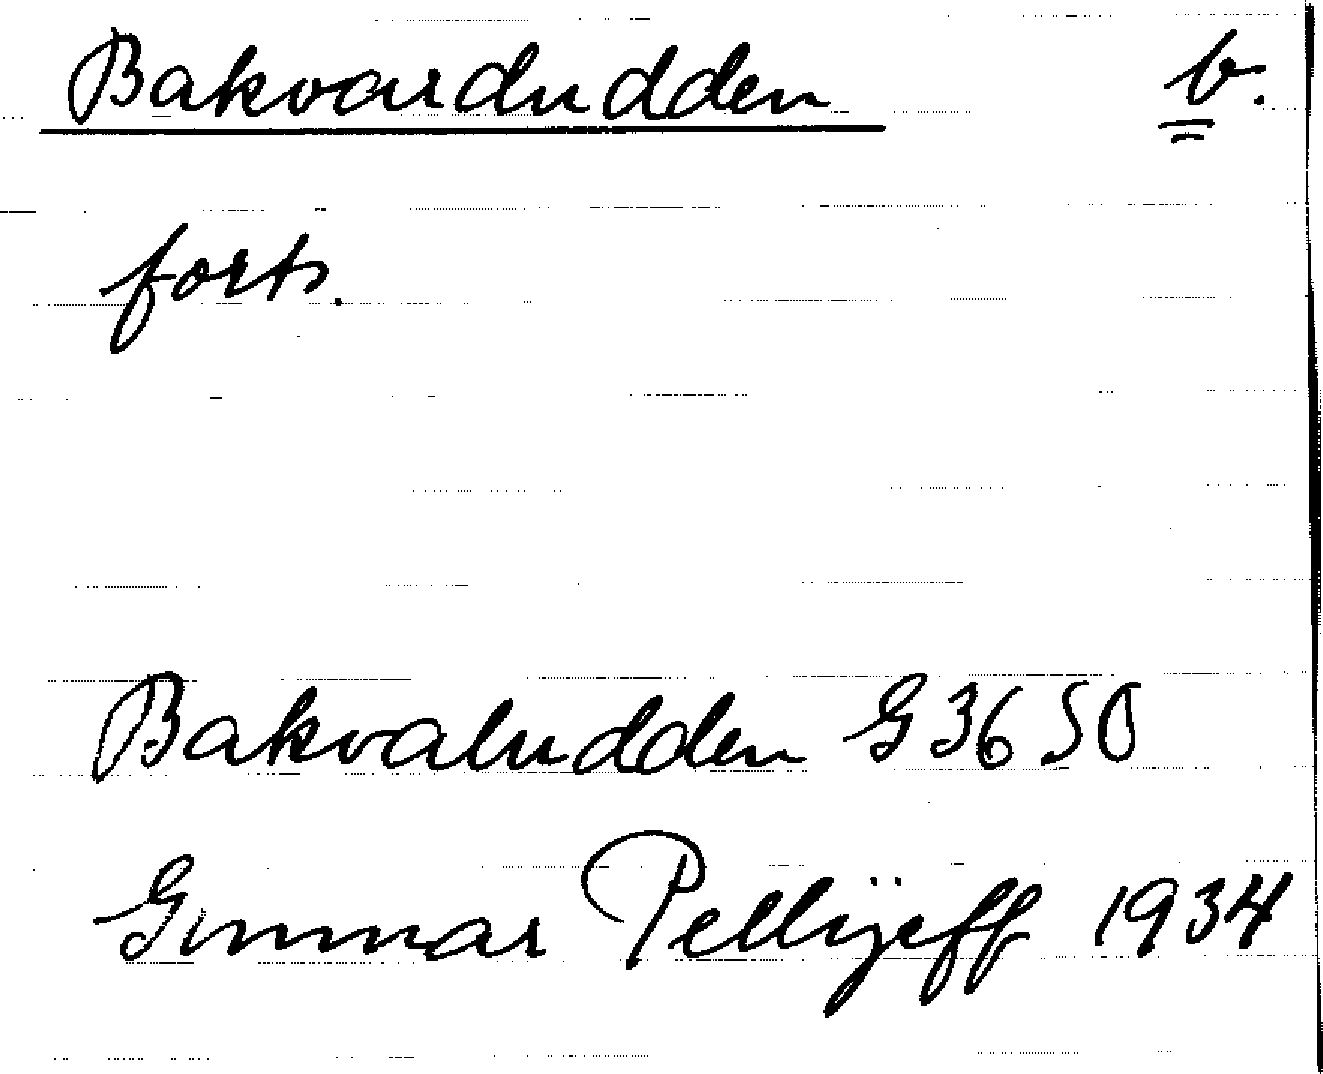 Bakvardudden b.
forts.
Bakvaludden G 36 50
Gunnar Pellijeff 1934